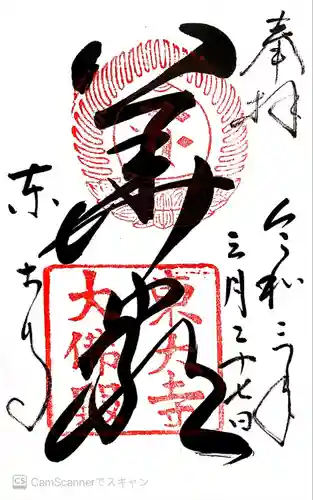 奉拝
令和三年
三月二十七日
華嚴
東大寺
大佛殿
東大寺
CS CamScannerでスキャン